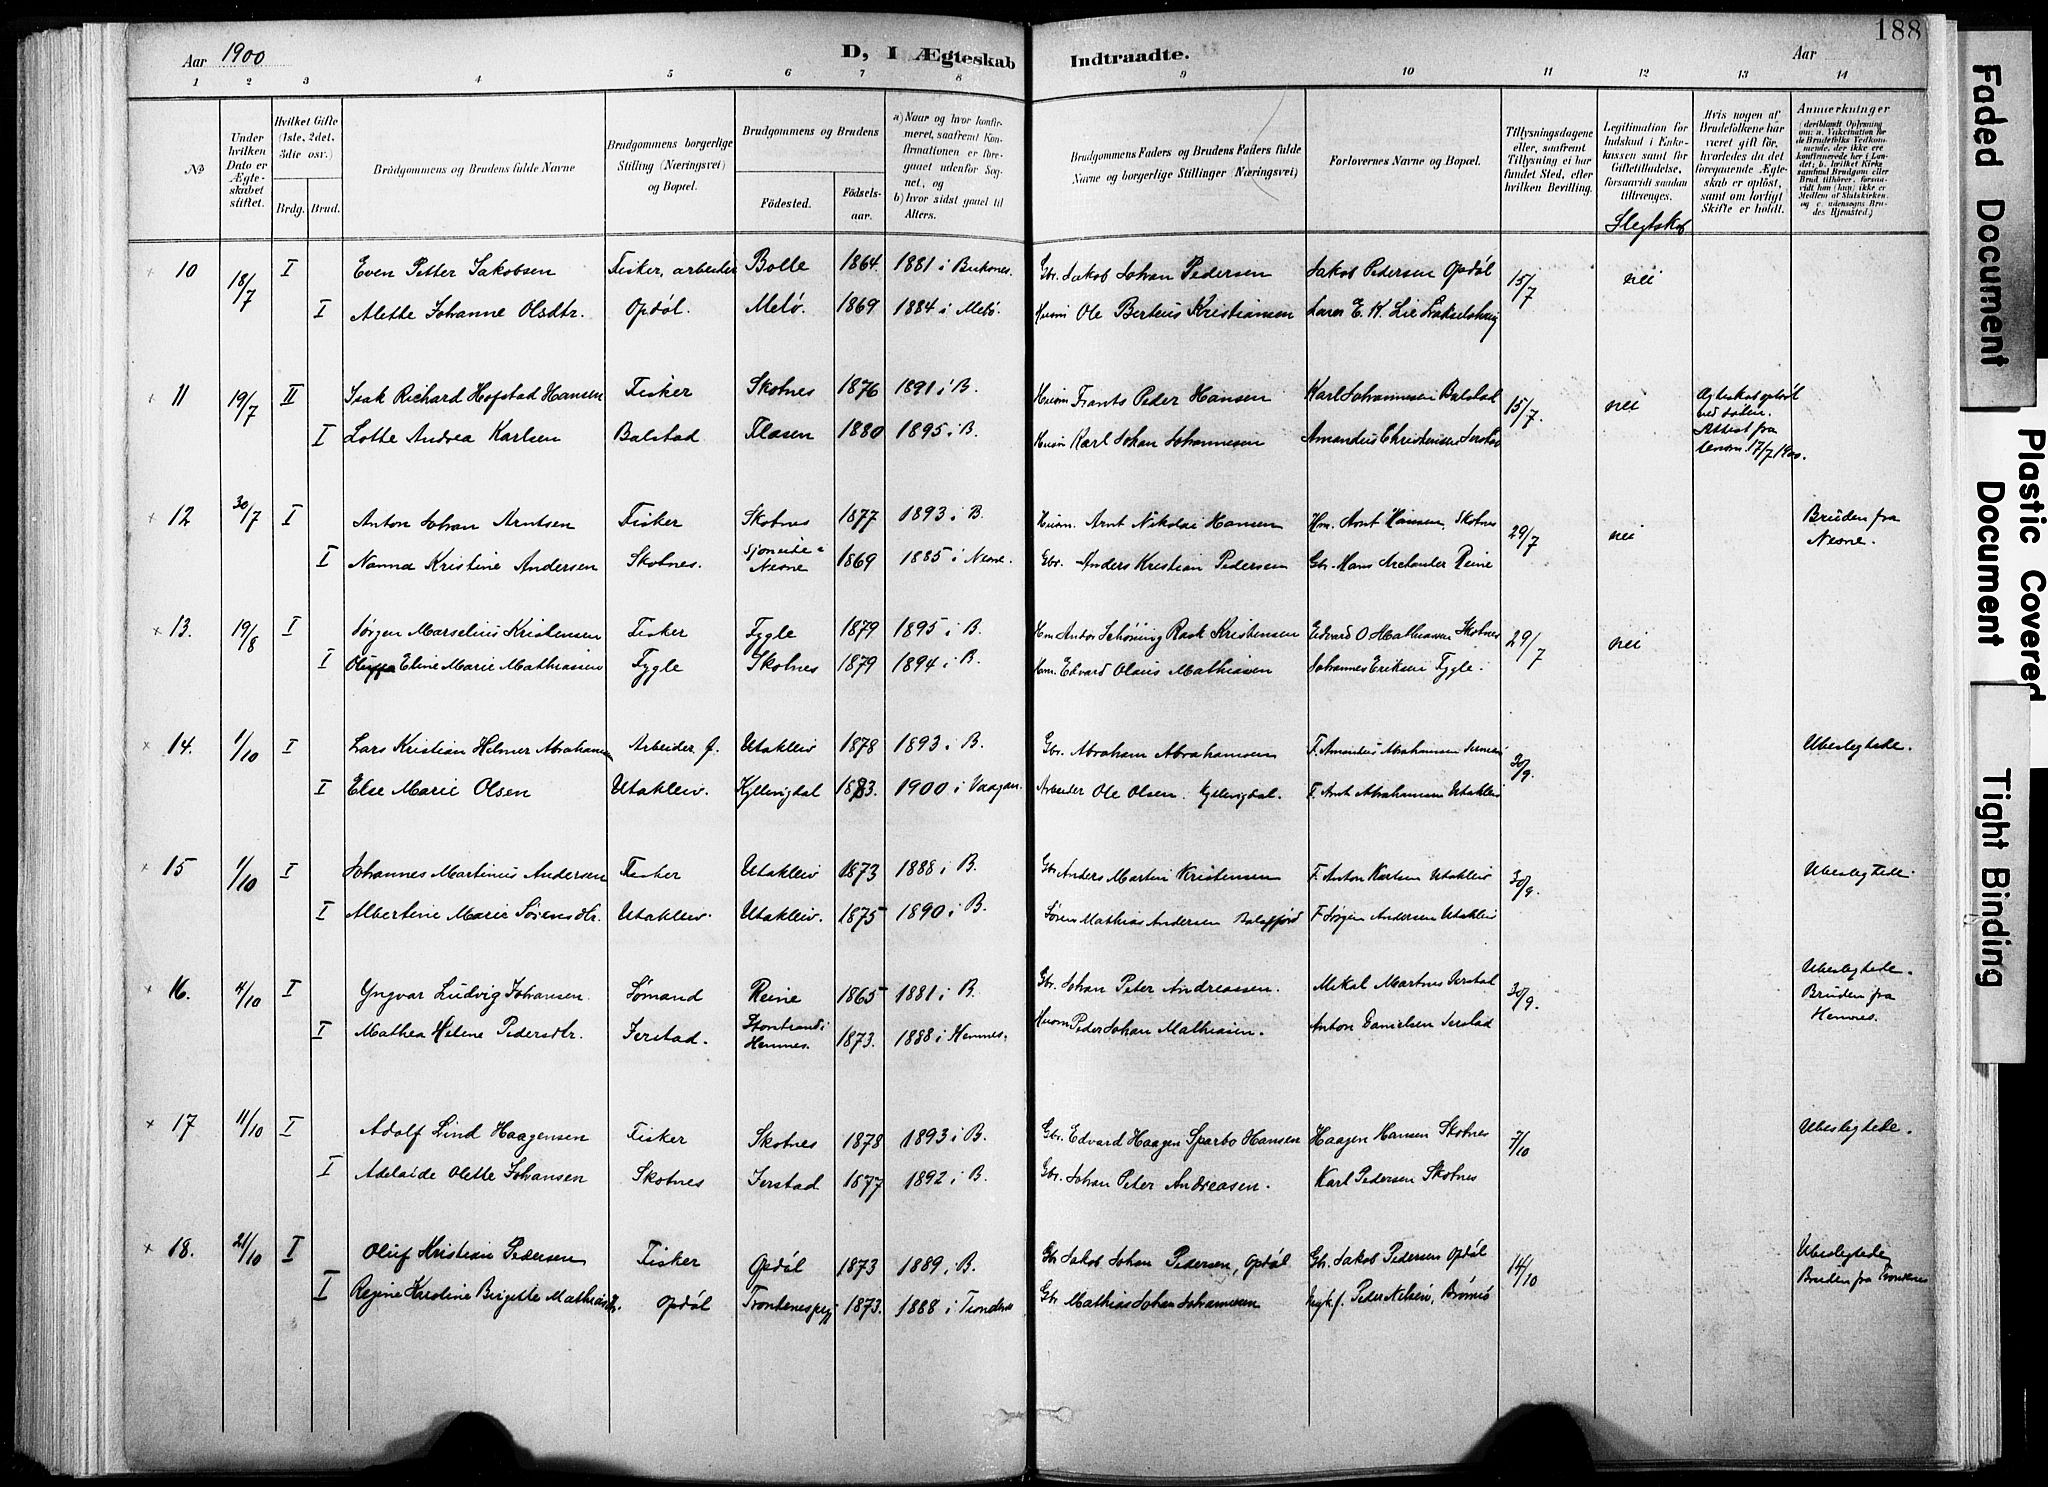 188
Aar 1900 D, I Ægteskab Indtraadte. Aar
1 2 3 4 5 6 7 8 9 10 11 12 13 14
No
Under hvilken Dato er Ægteskabet stiftet.
Hvilket Gifte (1ste, 2det, 3die osv.)
Brdg. Brud.
Brudgommens og Brudens fulde Navne
Brudgommens borgerlige Stilling (Næringsvei) og Bopæl.
Brudgommens og Brudens
Födested. Födselsaar.
a) Naar og hvor konfirmeret, saafremt Konfirmationen er foregaaet udenfor Sognet, og
b) hvor sidst gaaet til Alters.
Brudgommens Faders og Brudens Faders fulde Navne og borgerlige Stillinger (Næringsvei)
Forlovernes Navne og Bopæl.
Tillysningsdagene eller, saafremt Tillysning ei har fundet Sted, efter hvilken Bevilling.
Legitimation for Indskud i Enkekassen samt for Giftetilladelse, forsaavidt saadan tiltrænges.
Slegtskab
Hvis nogen af Brudefolkene har været gift för, hvorledes da det foregaaende Ægteskab er oplöst, samt om lovligt Skifte er holdt.
Anmerkninger
(deriblandt Oplysning om: a. Vakcination for de Brudefolks Vedkommende, der ikke ere konfirmerede her i Landet; b. hvilket Kirkesamfund Brudgom eller Brud tilhörer, forsaavidt han (hun) ikke er Medlem af Statskirken, og c. udensogns Brudes Hjemsted.)
10 18/7 I Even Petter Jakobsen Fisker, arbeider Bolle 1864 1881 i Buksnes. Gbr. Jakob Johan Pedersen Jakob Pedersen Opdøl 15/7 nei
I Alette Johanne Olsdtr. Opdøl. Melø. 1869 1884 i Melø. Husm Ole Berteus Kristiansen Lares E. K. Lie
11 19/7 II Isak Richard Hofstad Hansen Fisker Skotnes 1876 1891 i B. Husm Frants Peder Hansen Karl Johannesen Balstad 15/7. nei Ægteskab opløst ved døden.
I Lotte Andrea Karlsen Balstad Flasen 1880 1895 i B. Husm Karl Johan Johannesen Amandus Christensen Jerstad Attest fra 17/7 1900.
12 30/7 I Anton Johan Arntsen Fisker Skotnes 1877 1893 i B. Husm. Arnt Nikolai Hansen Hm. Arnt Hansen, Skotnes 29/7 nei Bruden fra Nesne.
I Nanna Kristine Andersen Skotnes. Sjoneide i Nesne 1869 1885 i Nesne. Gbr. Anders Kristian Pedersen Gbr. Hans Arelander Reine
13. 19/8 I Jørgen Marselius Kristensen Fisker Fygle 1879 1895 i B. Hm Andor Schöning Rask Kristensen Edvard O Mathiasen Skotnes 29/7 nei
I Oluffa Eline Marie Mathiassen Fygle Skotnes 1879 1894 i B. Hm. Edvard Olaus Mathiasen Johannes Eriksen Fygle.
14. 1/10 I Lars Kristian Helmer Abrahamsen Arbeider f. Utakleiv 1878 1893 i B. Gbr. Abraham Abrahamsen F. Amandus Abrahamsen 30/9. Ubeslegtede.
I Else Marie Olsen Utakleiv. Kyllevigdal 1883. 1900 i Vaagan. Arbeider Ole Olsen. Kyllevigdal. F. Arnt Abrahamsen Utakleiv
15 1/10 I Johannes Martinus Andersen Fisker Utakleiv 1873 1888 i B. Gbr Anders Martin Kristensen F. Anton Karlsen Utakleiv 30/9. Ubeslegtede.
I Albertine Marie Sørensdtr. Utakleiv. Utakleiv. 1875 1890 i B. Søren Mathias Andersen Balsfjord F. Jørgen Andersen Utakleiv
16. 4/10 I Yngvar Ludvig Johansen. Sømand Reine 1865 1881 i B. Gbr. Johan Peter Andreassen. Mekal Martnes Jerstad 30/9. Ubeslegtede. Bruden fra Hemnes.
I Mathea Helene Pedersdtr. Jerstad. Storstrand i Hemnes. 1873. 1888 i Hemnes. Husm Peder Johan Mathiasen. Anton Danielsen Jerstad
17 11/10 I Adolf Lind Haagensen Fisker Skotnes 1878 1893 i B. Gbr. Edvard Haagen Sparbo Hansen Haagen Hansen Skotnes 7/10 Ubeslegtede.
I Adelaide Olette Johansen Skotnes Jerstad 1877 1892 i B. Gbr. Johan Peter Andreasen. Karl Pedersen Skotnes
18. 21/10 I Oluf Kristian Pedersen Fisker Opdøl 1873 1889 i B. Gbr Jakob Johan Pedersen, Opdøl Gbr. Jakob Pedersen Opdøl 14/10 Ubeslegtede
I Regine Karoline Birgitte Mathiasdtr. Opdøl Trondenes pgj 1873. 1888 i Trondenes Gbr Mathias Johan Johannesen Peder Nelsen, Bruden fra Trondenes
Faded Document
Plastic Covered Document
Tight Binding